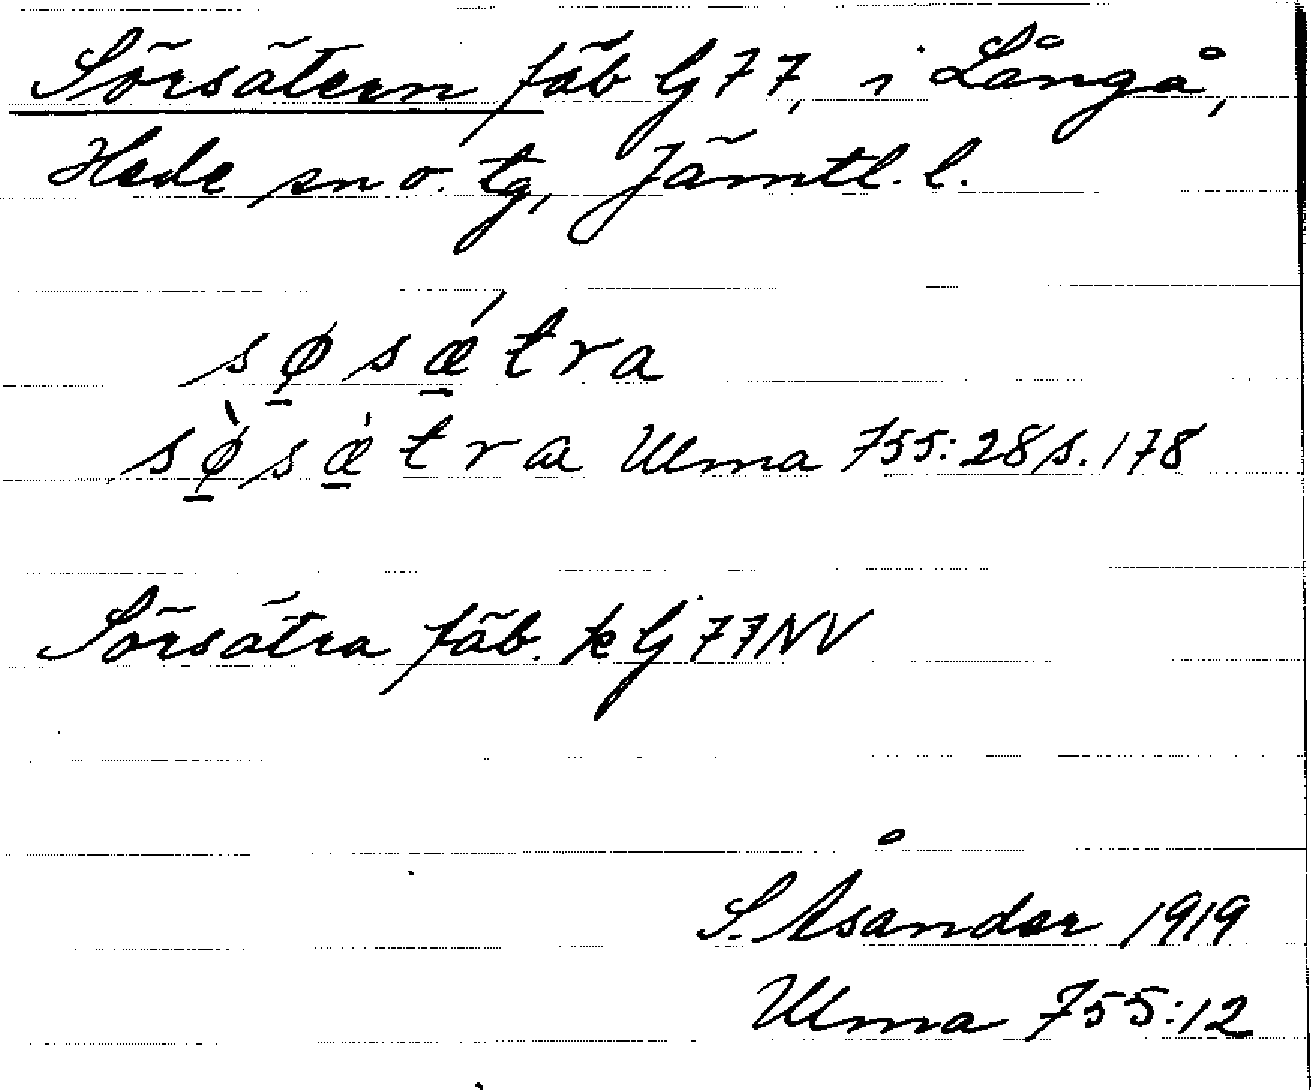 Sörsätern fäb Gj 77, i Långå,
Hede sn o. tg, Jämtl. l.
sø̱sǽ̱tra
sø̱̀sæ̱̀tra Ulma 755:28 s. 178
Sörsätra fäb. k Gj 77 NV
S. Åsander 1919
Ulma 755:12